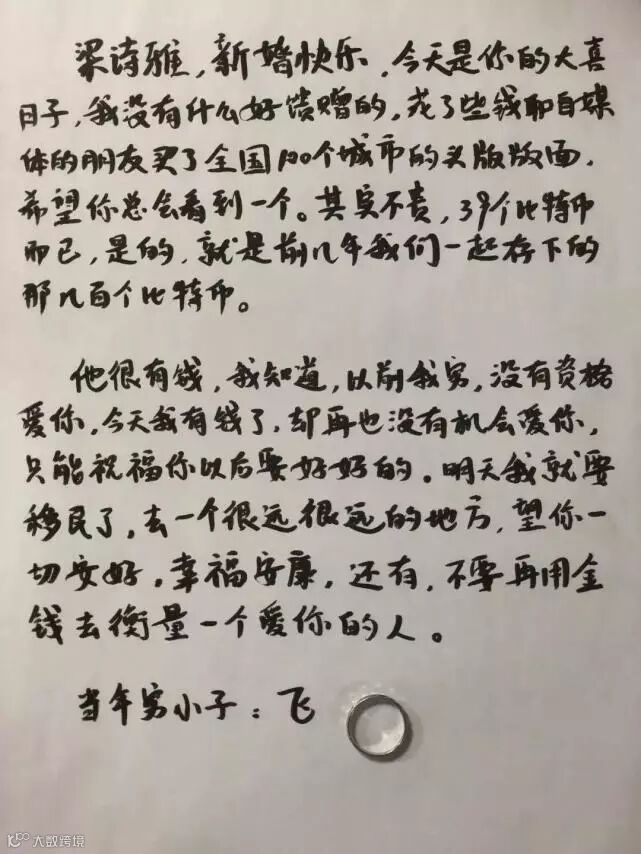 梁诗雅,新婚快乐,今天是你的大喜
日子,我没有什么好馈赠的,花了些钱和自媒
体的朋友买了全国100个城市的头版版面,
希望你总会看到一个。其实不贵,39个比特币
而已,是的,就是前几年我们一起存下的
那几百个比特币。
他很有钱,我知道,以前我穷,没有资格
爱你,今天我有钱了,却再也没有机会爱你,
只能祝福你以后要好好的。明天我就要
移民了,去一个很远很远的地方,望你一
切安好,幸福安康,还有,不要再用金
钱去衡量一个爱你的人。
当年穷小子:飞
10100 大数跨境